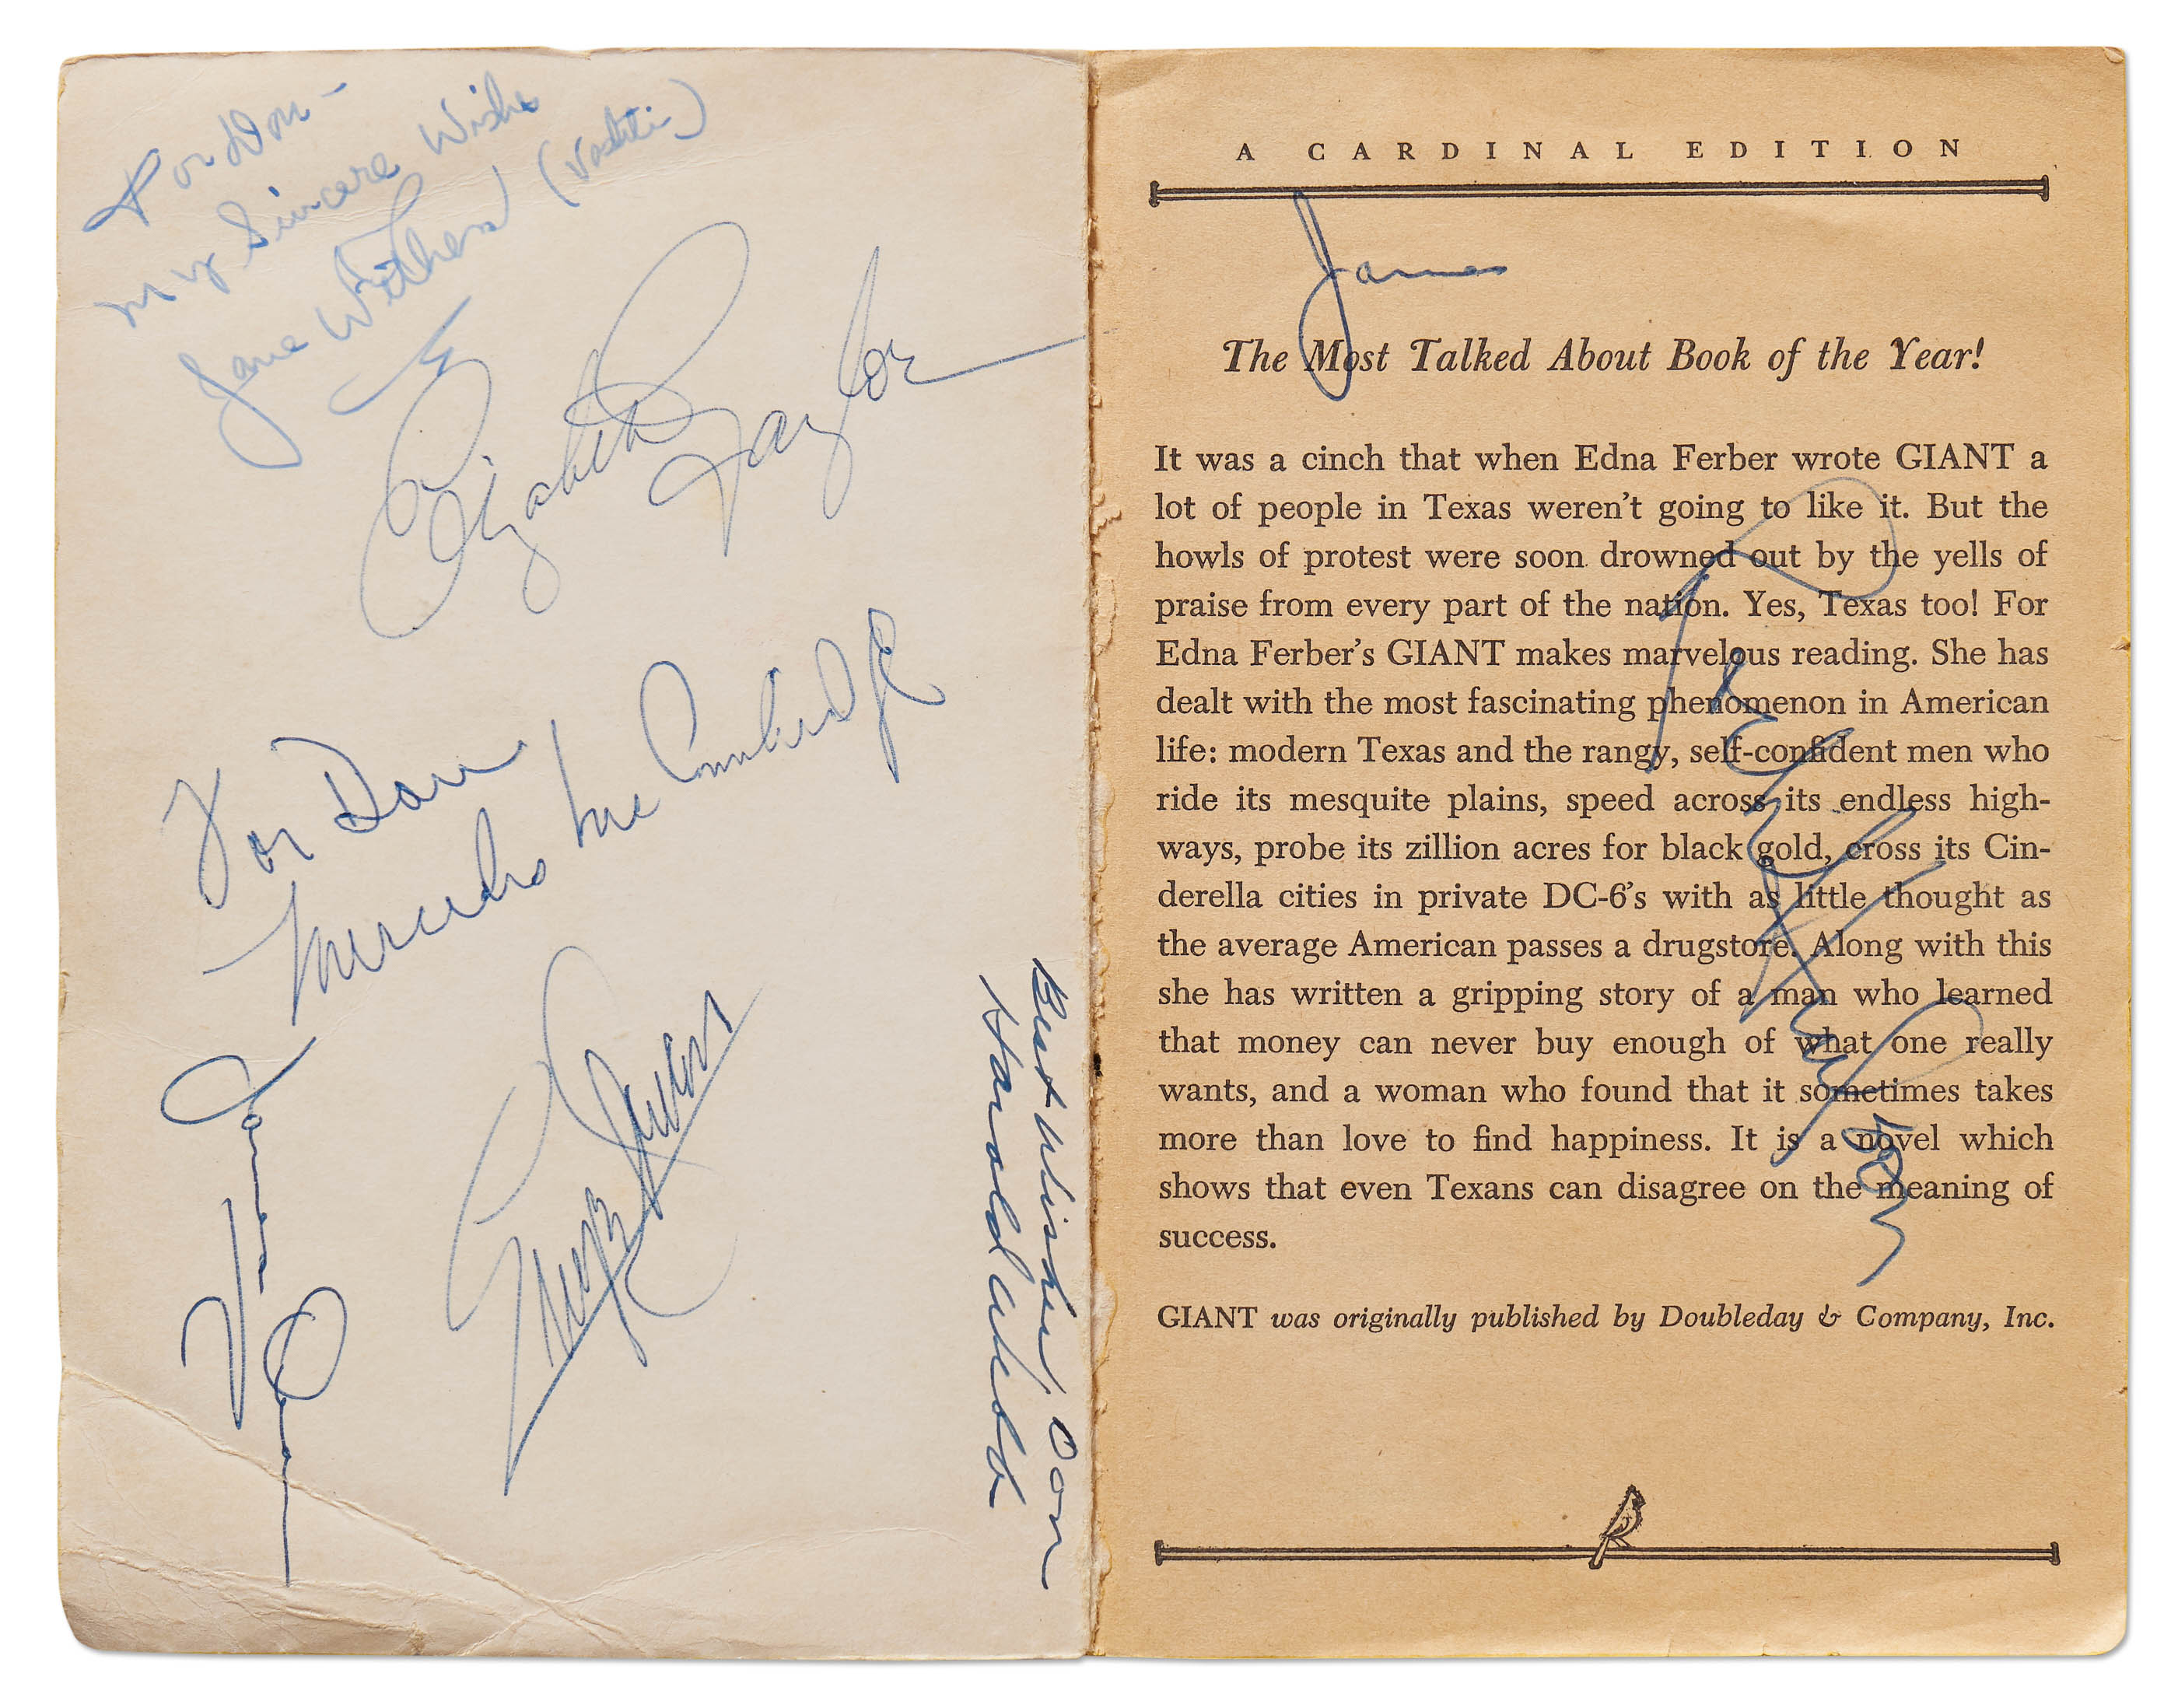 For Don –
My Sincere Wishes
Jane Withers (Vashti)
Elizabeth Taylor
For Don
Mercedes McCambridge
James Dean
George Stevens
Best Wishes, Don
Harold Webb
A CARDINAL EDITION
James
The Most Talked About Book of the Year!
It was a cinch that when Edna Ferber wrote GIANT a
lot of people in Texas weren't going to like it. But the
howls of protest were soon drowned out by the yells of
praise from every part of the nation. Yes, Texas too! For
Edna Ferber's GIANT makes marvelous reading. She has
dealt with the most fascinating phenomenon in American
life: modern Texas and the rangy, self-confident men who
ride its mesquite plains, speed across its endless high-
ways, probe its zillion acres for black gold, cross its Cin-
derella cities in private DC-6's with as little thought as
the average American passes a drugstore. Along with this
she has written a gripping story of a man who learned
that money can never buy enough of what one really
wants, and a woman who found that it sometimes takes
more than love to find happiness. It is a novel which
shows that even Texans can disagree on the meaning of
success.
GIANT was originally published by Doubleday & Company, Inc.
Rock Hudson